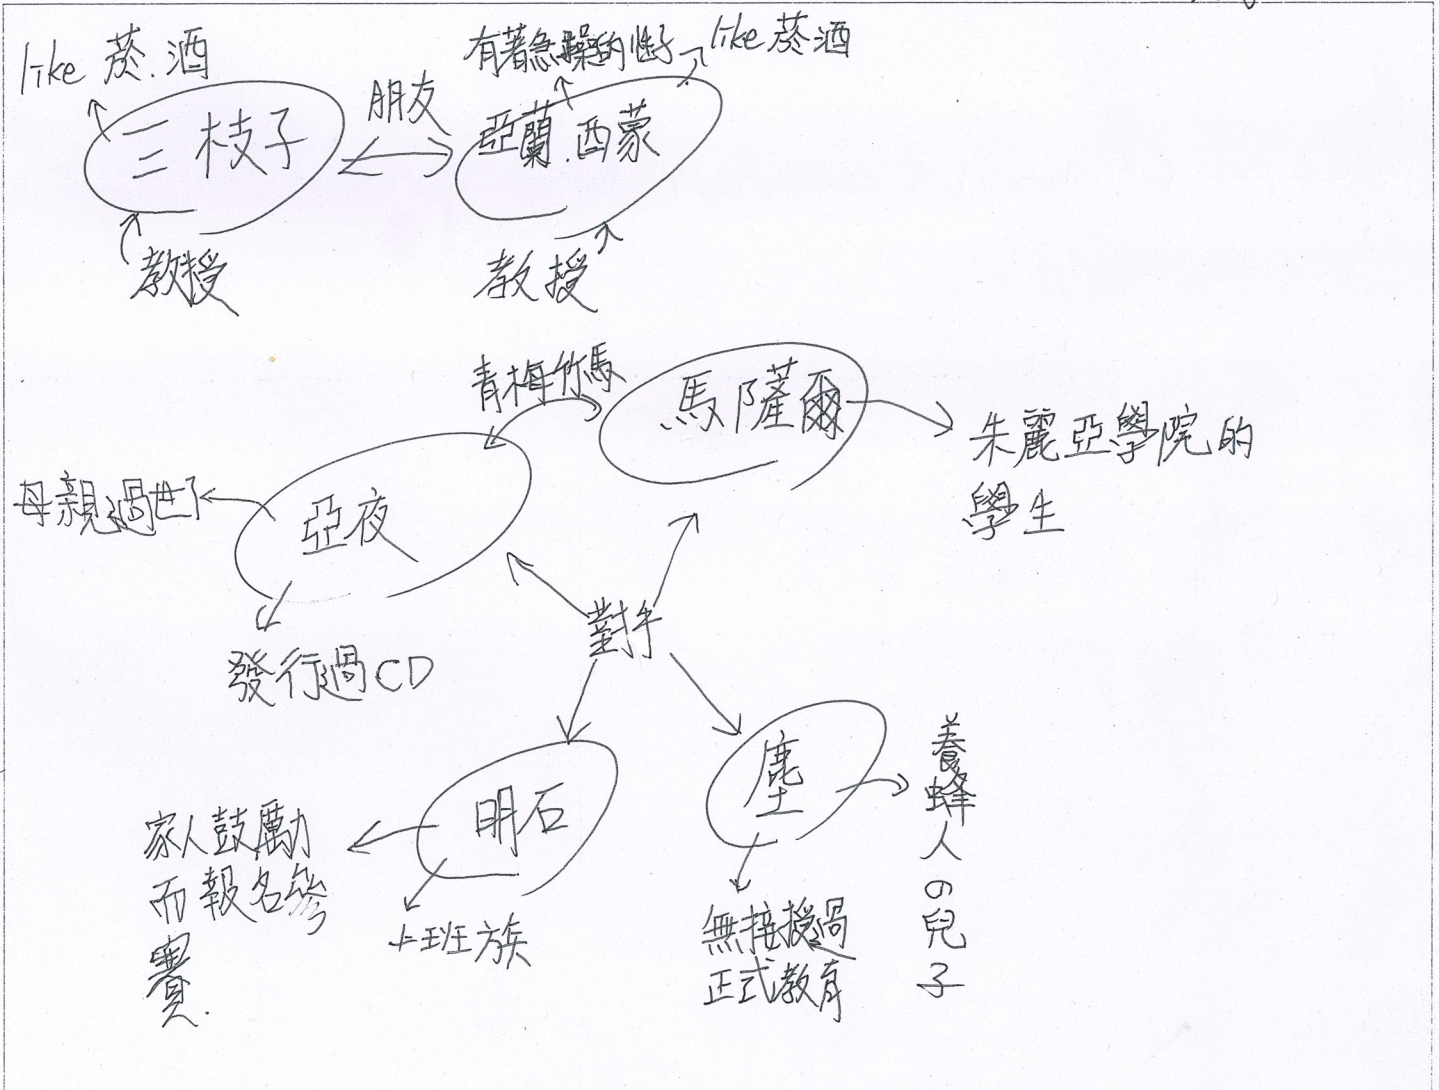 like 菸.酒
有著急躁的性子
like 菸酒
朋友
三枝子
亞蘭.西蒙
教授
教授
青梅竹馬
馬薩爾
朱麗亞學院的
學生
母親過世了
亞夜
發行過CD
對手
明石
家人鼓勵
而報名參
賽.
上班族
塵
養蜂人の兒子
無接授過
正式教育